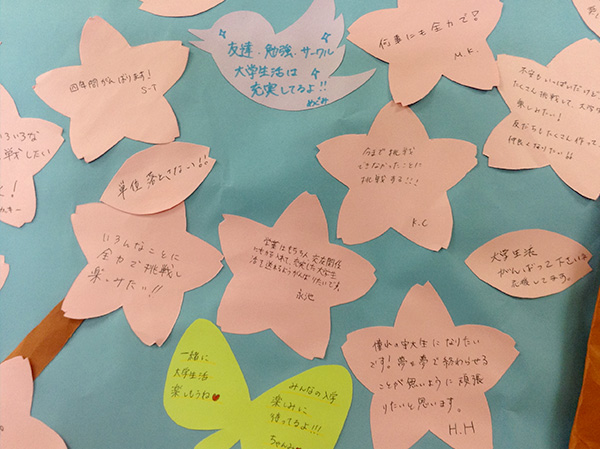 四年間がんばります！
S-T
友達・勉強・サークル
大学生活は
充実してるよ!!
めぐみ
何事にも全力で！
M.K.
不安もいっぱいだけど
たくさん挑戦して、大学生
楽しみたい！
友だちもたくさん作って
仲良くなりたい
いろいろな
戦したい
単位落とさない
今まで挑戦
できなかったことに
挑戦する!!!
K.C
いろんなことに
全力で挑戦し
楽しみたい!!
学業はもちろん、交友関係
充実した大学生
活を送れるようがんばりたいです。
永池
大学生活
がんばって下さいね
応援してます。
一緒に
大学生活
楽しもうね
みんなの入学
楽しみに
待ってるよ!!!
ちゃんみー
憧れの字大生になりたい
です！夢を夢で終わらせる
ことが無いように頑張
りたいと思います。
H.H